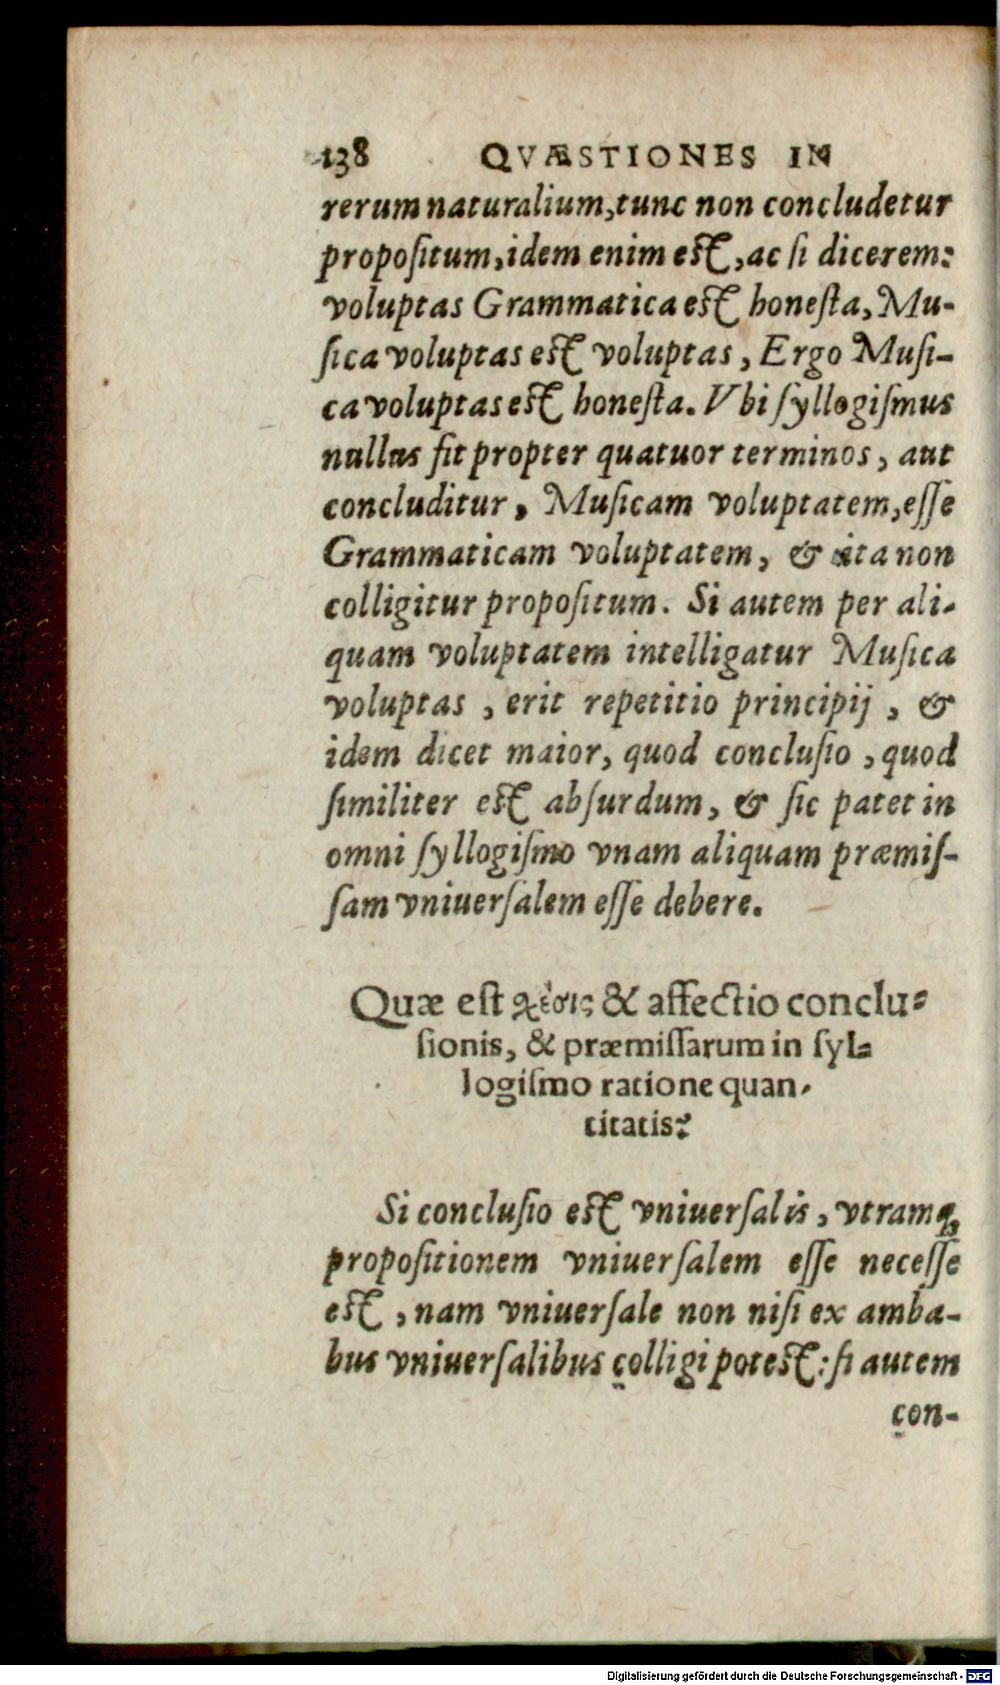 138 QVÆSTIONES IN
rerum naturalium, tunc non concludetur
propoſitum, idem enim eſt, ac ſi dicerem:
voluptas Grammatica eſt honeſta, Mu-
ſica voluptas eſt voluptas, Ergo Muſi-
ca voluptas eſt honeſta. Vbi ſyllogiſmus
nullus fit propter quatuor terminos, aut
concluditur, Muſicam voluptatem, eſſe
Grammaticam voluptatem, & ita non
colligitur propoſitum. Si autem per ali-
quam voluptatem intelligatur Muſica
voluptas, erit repetitio principij, &
idem dicet maior, quod concluſio, quod
ſimiliter eſt abſurdum, & ſic patet in
omni ſyllogiſmo vnam aliquam præmiſ-
ſam vniuerſalem eſſe debere.
Quæ eſt χέσις & affectio conclu-
ſionis, & præmiſſarum in ſyl-
logiſmo ratione quan-
titatis?
Si concluſio eſt vniuerſalis, vtramq;
propoſitionem vniuerſalem eſſe neceſſe
eſt, nam vniuerſale non niſi ex amba-
bus vniuerſalibus colligi poteſt: ſi autem
con-
Digitalisierung gefördert durch die Deutsche Forschungsgemeinschaft - DFG